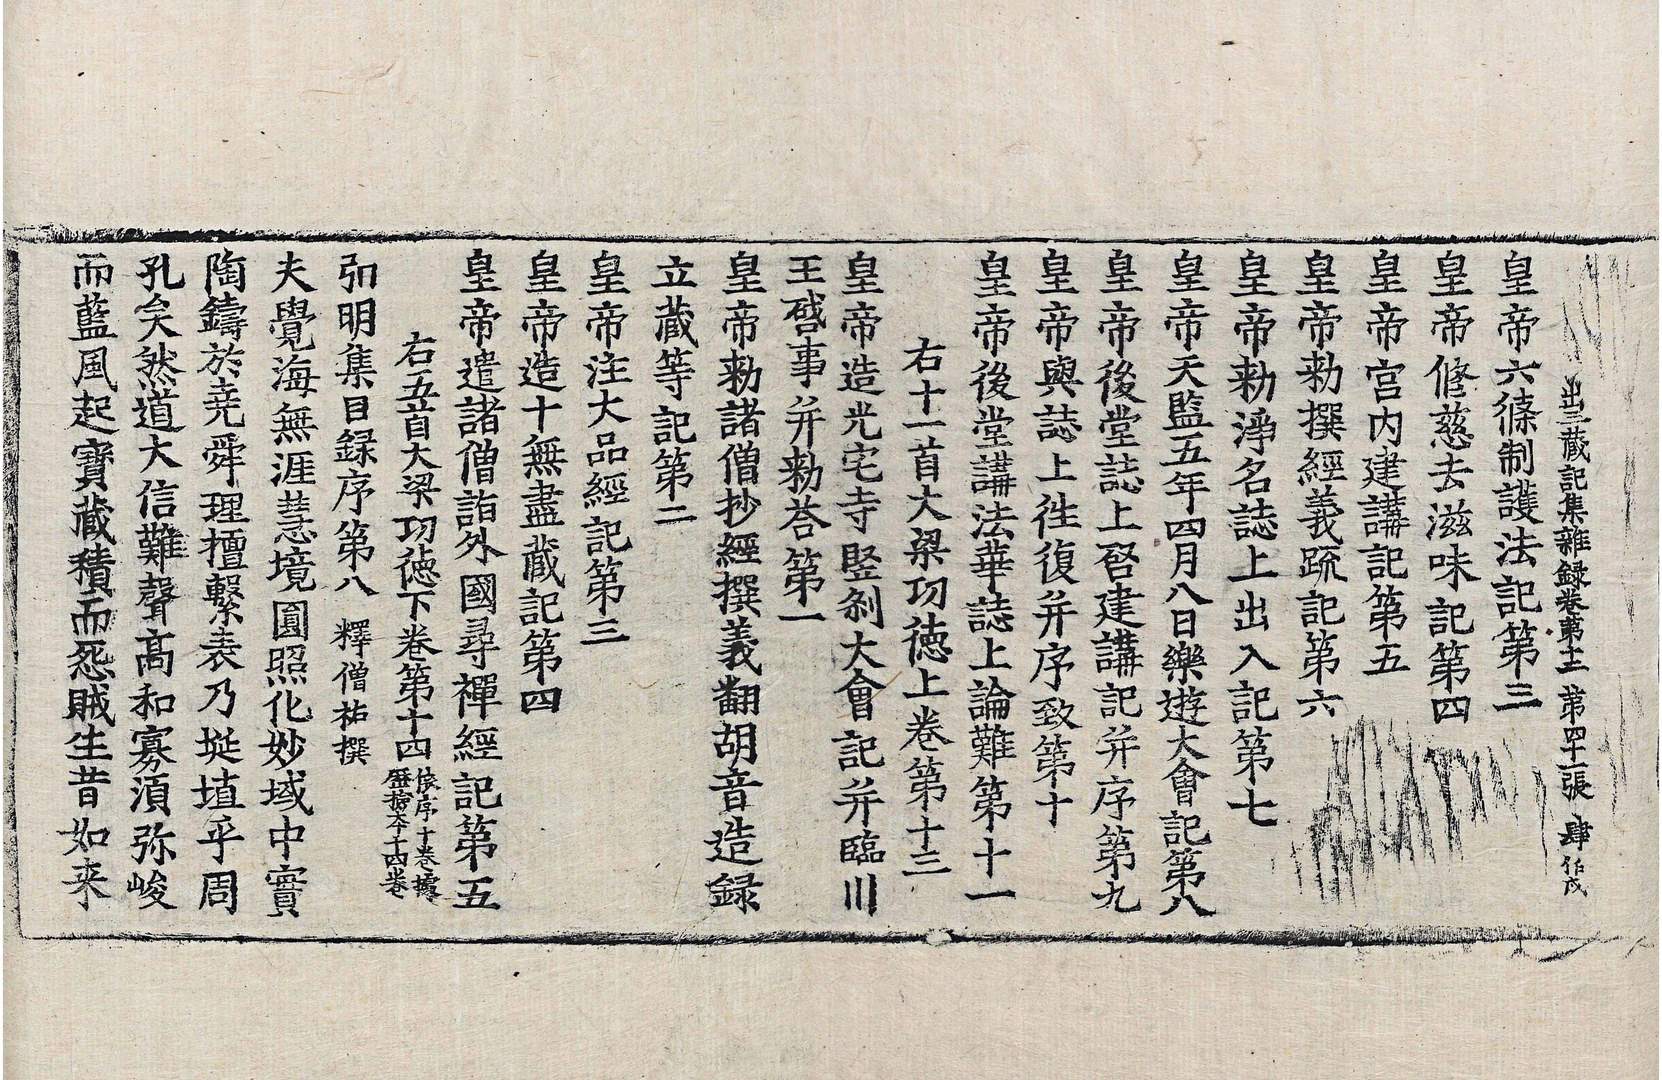 出三藏記集雜録卷第十二 第四十一張 肆
皇帝六條制護法記第三
皇帝修慈去滋味記第四
皇帝宫内建講記第五
皇帝勑撰經義疏記第六
皇帝勑淨名誌上出入記第七
皇帝天監五年四月八日樂遊大會記第八
皇帝後堂誌上啓建講記并序第九
皇帝與誌上往復并序致第十
皇帝後堂講法華誌上論難第十一
右十一首大梁功德上卷第十三
皇帝造光宅寺竪剎大會記并臨川
王啓事并勑荅第一
皇帝勑諸僧抄經撰義翻胡音造録
立藏等記第二
皇帝注大品經記第三
皇帝造十無盡藏記第四
皇帝遣諸僧詣外國尋禪經記第五
右五首大梁功德下卷第十四
依序十卷據
歷撿本十四卷
弘明集目録序第八 釋僧祐撰
夫覺海無涯慧境圓照化妙域中實
陶鑄於尭舜理擅繫表乃埏埴乎周
孔矣然道大信難聲高和寡須弥峻
而藍風起寶藏積而怨賊生昔如来